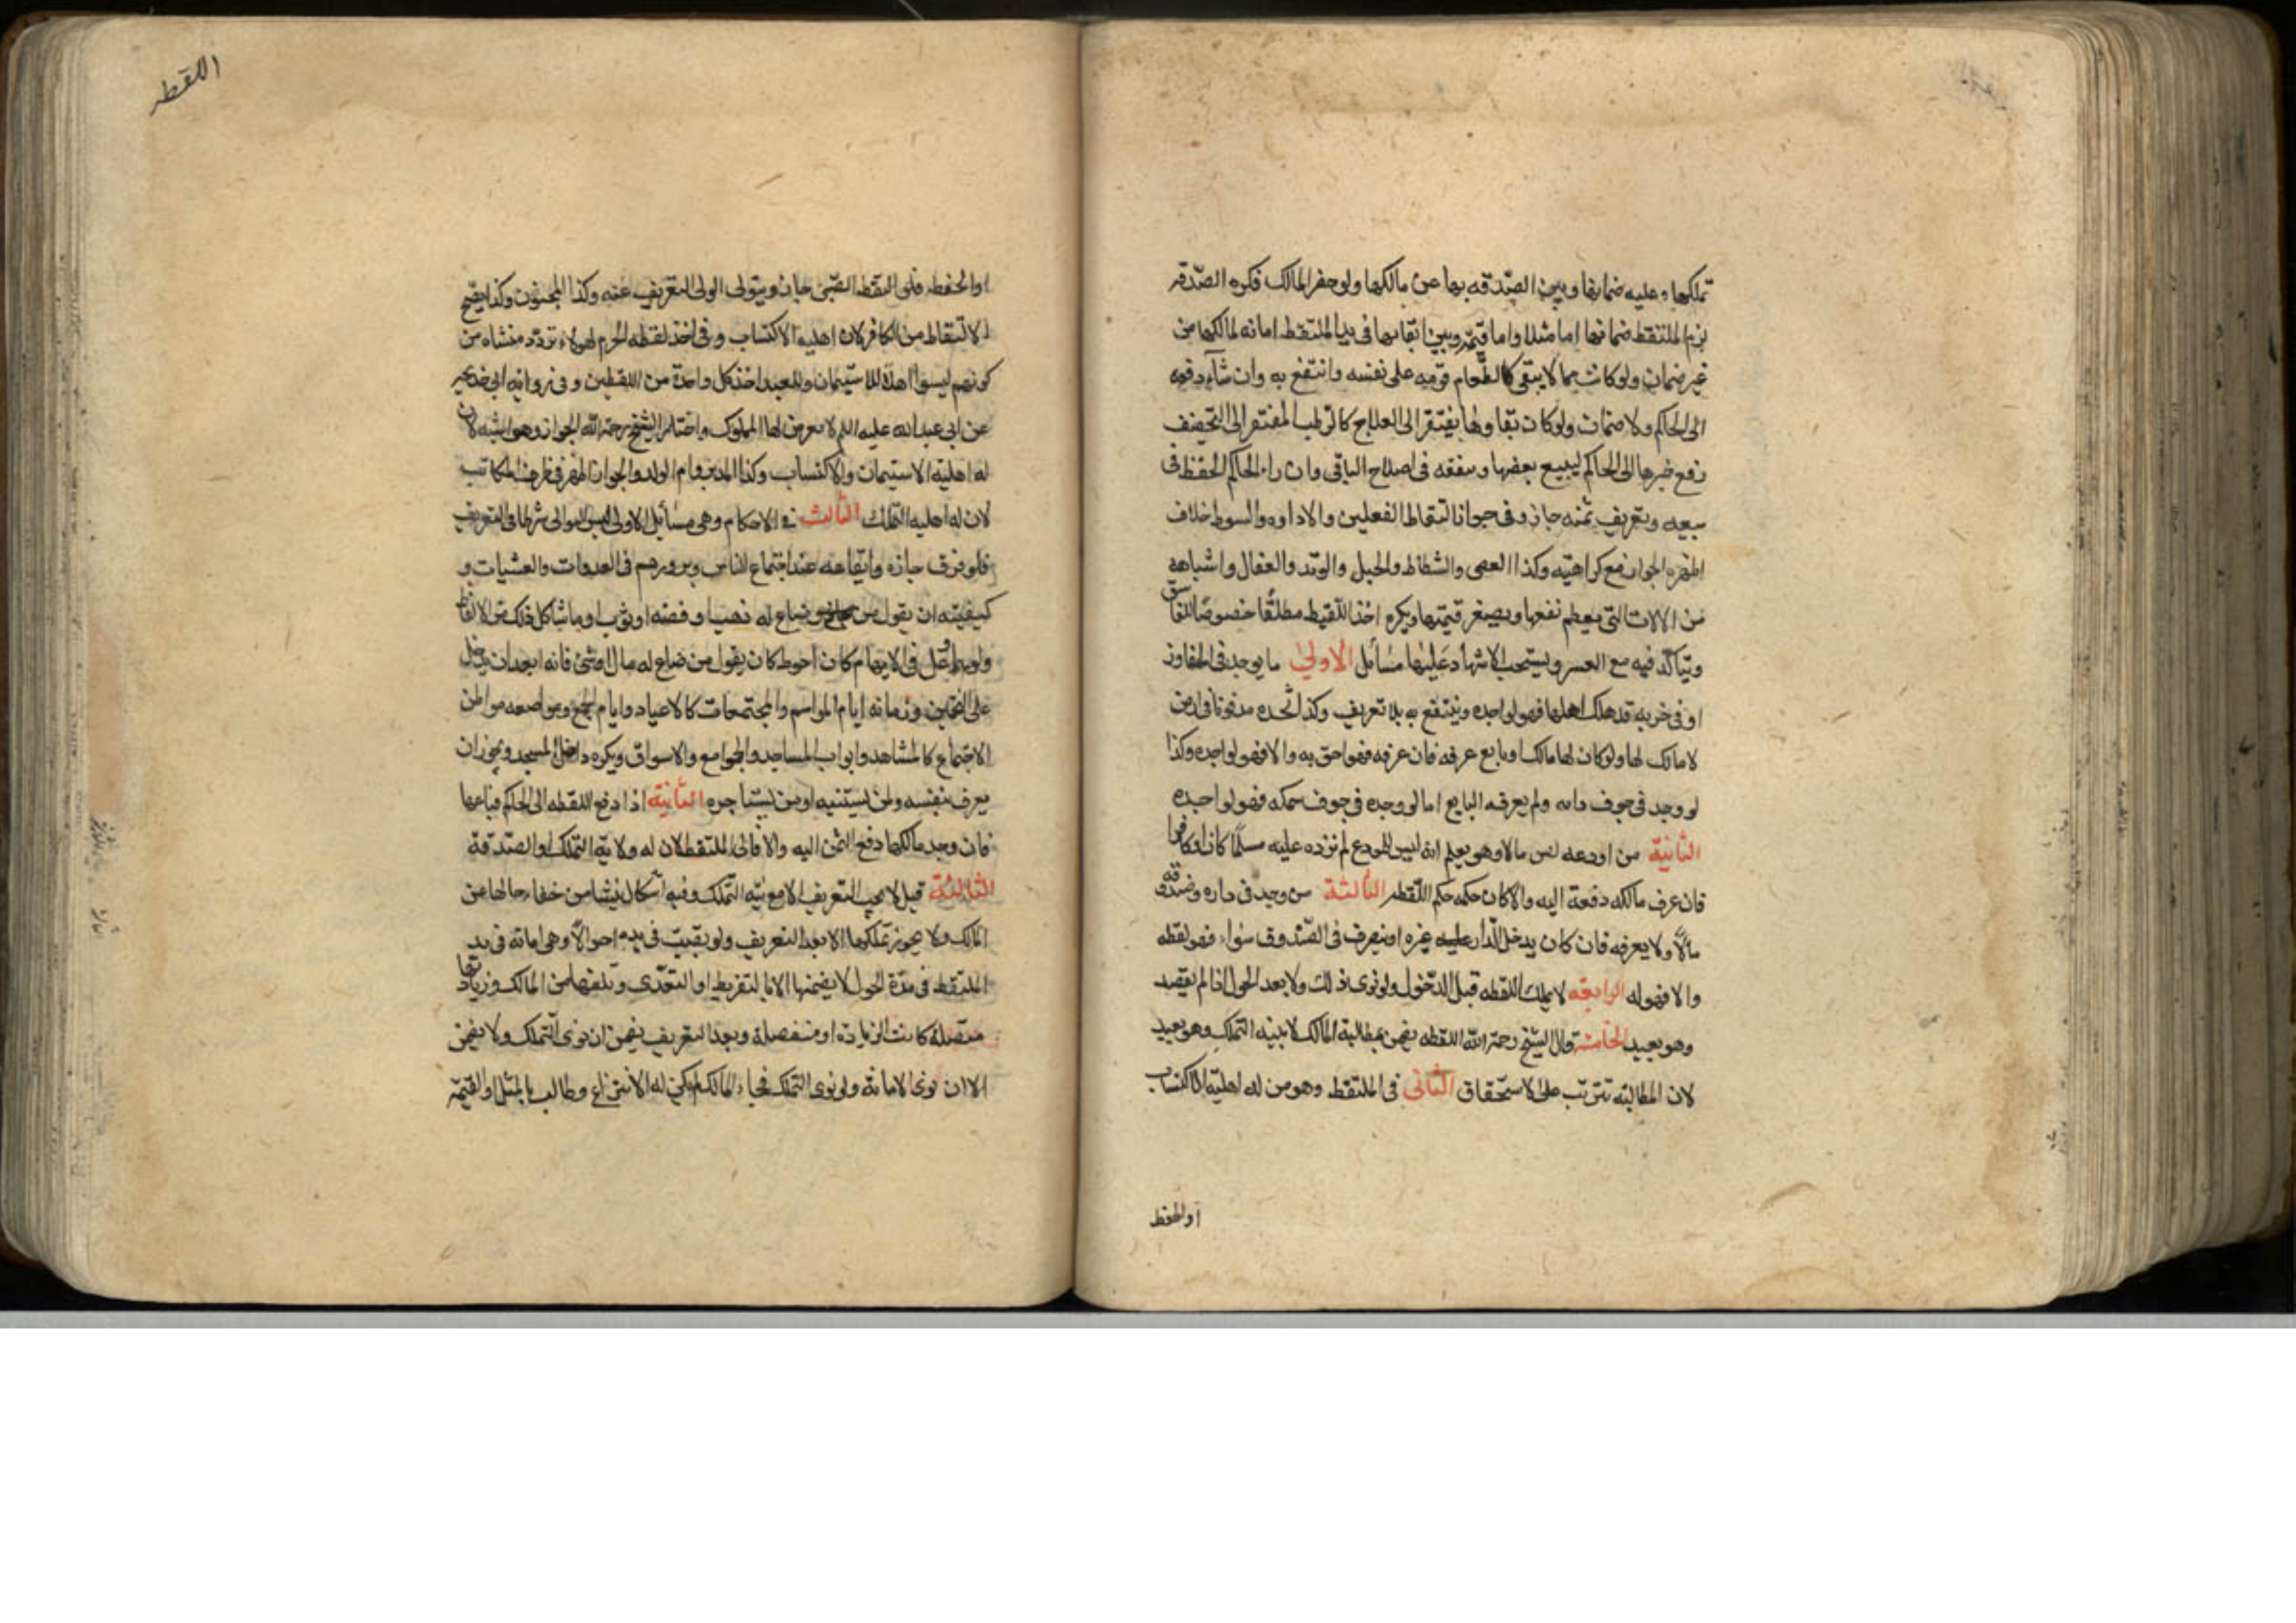 تملكها وعليه ضمانها وبين الصدقه بها عن مالكها ولو حضر المالك فكره الصدقه
لزم الملتقط ضمانها اما مثلا واما قيمه وبين ابقائها فى يد الملتقط امانه لمالكها من
غير ضمان ولو كانت مما لا يبقى كالطعام قومه على نفسه وانتفع به وان شآء دفعه
الى الحاكم ولا ضمان ولو كان بقاوها يفتقر الى العلاج كالرطب المفتقر الى التجفيف
رفع خبرها الى الحاكم ليبيع بعضها وينفقه فى اصلاح الباقى وان راى الحاكم الحفظ فى
بيعه وتعريف ثمنه جاز وفى جواز التقاط النعلين والاداوه والسوط خلاف
اظهره الجواز مع كراهيته وكذا العصى والشظاظ والحبل والوتد والعقال واشباهه
من الالات التى يعظم نفعها ويصغر قيمتها ويكره اخذ اللقيط مطلقًا خصوصًا للفاسق
ويتأكد فيه مع العسر ويستحب الاشهاد عليها مسائل الاولى ما يوجد فى المفاوز
او فى خربه قد هلك اهلها فهو لواجده وينتفع به بلا تعريف وكذا لحده مدفونا فى ارض
لا مالك لها ولو كان لها مالك او بايع عرفه فان عرفه فهو احق به والا فهو لواجده وكذا
لو وجد فى جوف دابه ولم يعرفه البايع اما لو وجده فى جوف سمكه فهو لواجده
الثانية من اودعه لص مالا وهو يعلم انه ليس للمودع لم يرده عليه مسلمًا كان او كافرا
فان عرف مالكه دفعة اليه والا كان حكمه حكم اللقطه الثالثة من وجد فى داره وصندوقه
مالًا ولا يعرفه فان كان يدخل الدار عليه غيره او يتصرف فى الصندوق سواه فهو لقطه
والا فهو له الرابعه لا يملك اللقطه قبل الدخول ولو نوى ذلك ولا بعد الحول اذا لم يقصد
وهو بعيد الخامسه قال الشيخ رحمه الله اللقطه يضمن بمطالبة المالك لا بنيه التملك وهو بعيد
لان المطالبته تترتب على الاستحقاق الثانى فى الملتقط وهو من له اهلية الاكتساب
او الحفظ
اللقطه
او الحفظ فلو التقط الصبى جاز ويتولى الولى التعريف عنه وكذا المجنون وكذا يصح
الالتقاط من الكافر لان له اهليه الاكتساب وفى اخذ لقطه الحرم لهولاء تردد منشاه من
كونهم ليسوا اهلا للاستيمان وللعبد اخذ كل واحدة من اللقطين وفى رواية ابى خديجه
عن ابى عبدالله عليه السلم لا يعرض لها المملوك واختار الشيخ رحمه الله الجواز وهو اشبه لان
له اهلية الاستيمان والاكتساب وكذا المدبر وام الولد والجواز اظهر فى طرف المكاتب
لان له اهليه التملك الثالث فى الاحكام وهى مسائل الاولى ليس التوالى شرطا فى التعريف
فلو فرق جاز وايقاعه عند اجتماع الناس وبروزهم فى الغدوات والعشيات و
كيفيته ان يقول من ضاع له ذهب او فضه او ثوب او ما شاكل ذلك من الالفاظ
ولو اوغل فى الابهام كان احوط كان يقول من ضاع له مال او شئ فانه ابعد ان يدخل
على التخمين وزمانه ايام المواسم والمجتمعات كالاعياد وايام الجمع ومواضعه مواطن
الاجتماع كالمشاهد وابواب المساجد والجوامع والاسواق ويكره داخل المسجد ويجوز ان
يعرف بنفسه ولمن يستنيبه او من يستاجره الثانية اذا دفع اللقطه الى الحاكم فباعها
فان وجد مالكها دفع الثمن اليه والا فالى الملتقط لان له ولاية التملك او الصدقة
الثالثة قيل لا يجب التعريف الا مع نيه التملك وفيه اشكال ينشا من خفاء حالها عن
المالك ولا يجوز تملكها الا بعد التعريف ولو بقيت فى يده احوالًا وهى امانه فى يد
الملتقط فى مدة الحول لا يضمنها الا بالتفريط او التعدى وتلفها من المالك وزيادتها
متصلة كانت الزيادة او منفصلة وبعد التعريف يضمن ان نوى التملك ولا يضمن
الا ان نوى الامانة ولو نوى التملك فجاء المالك لم يكن له الانتزاع وطالب بالمثل او القيمه